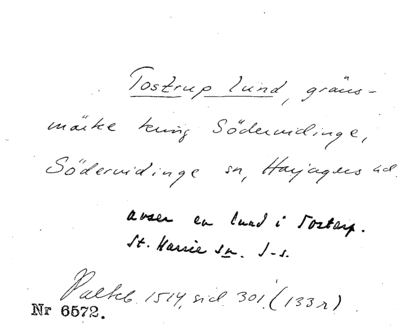 Tostrup lund, gräns-
märke kring Södervidinge,
Södervidinge sn, Harjagers hd.
avser en lund i Tostarp.
St. Harrie sn. J-s.
Palteb. 1514, sid 301. (133r)
Nr 6572.